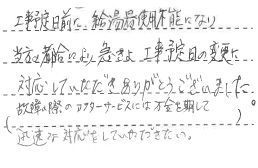 工事予定日前に、給湯器使用不能になり
当方都合により急きょ工事予定日の変更に
対応していただきありがとうございました。
(故障の際のアフターサービスには万全を期して
迅速な対応をしていただきたい。)